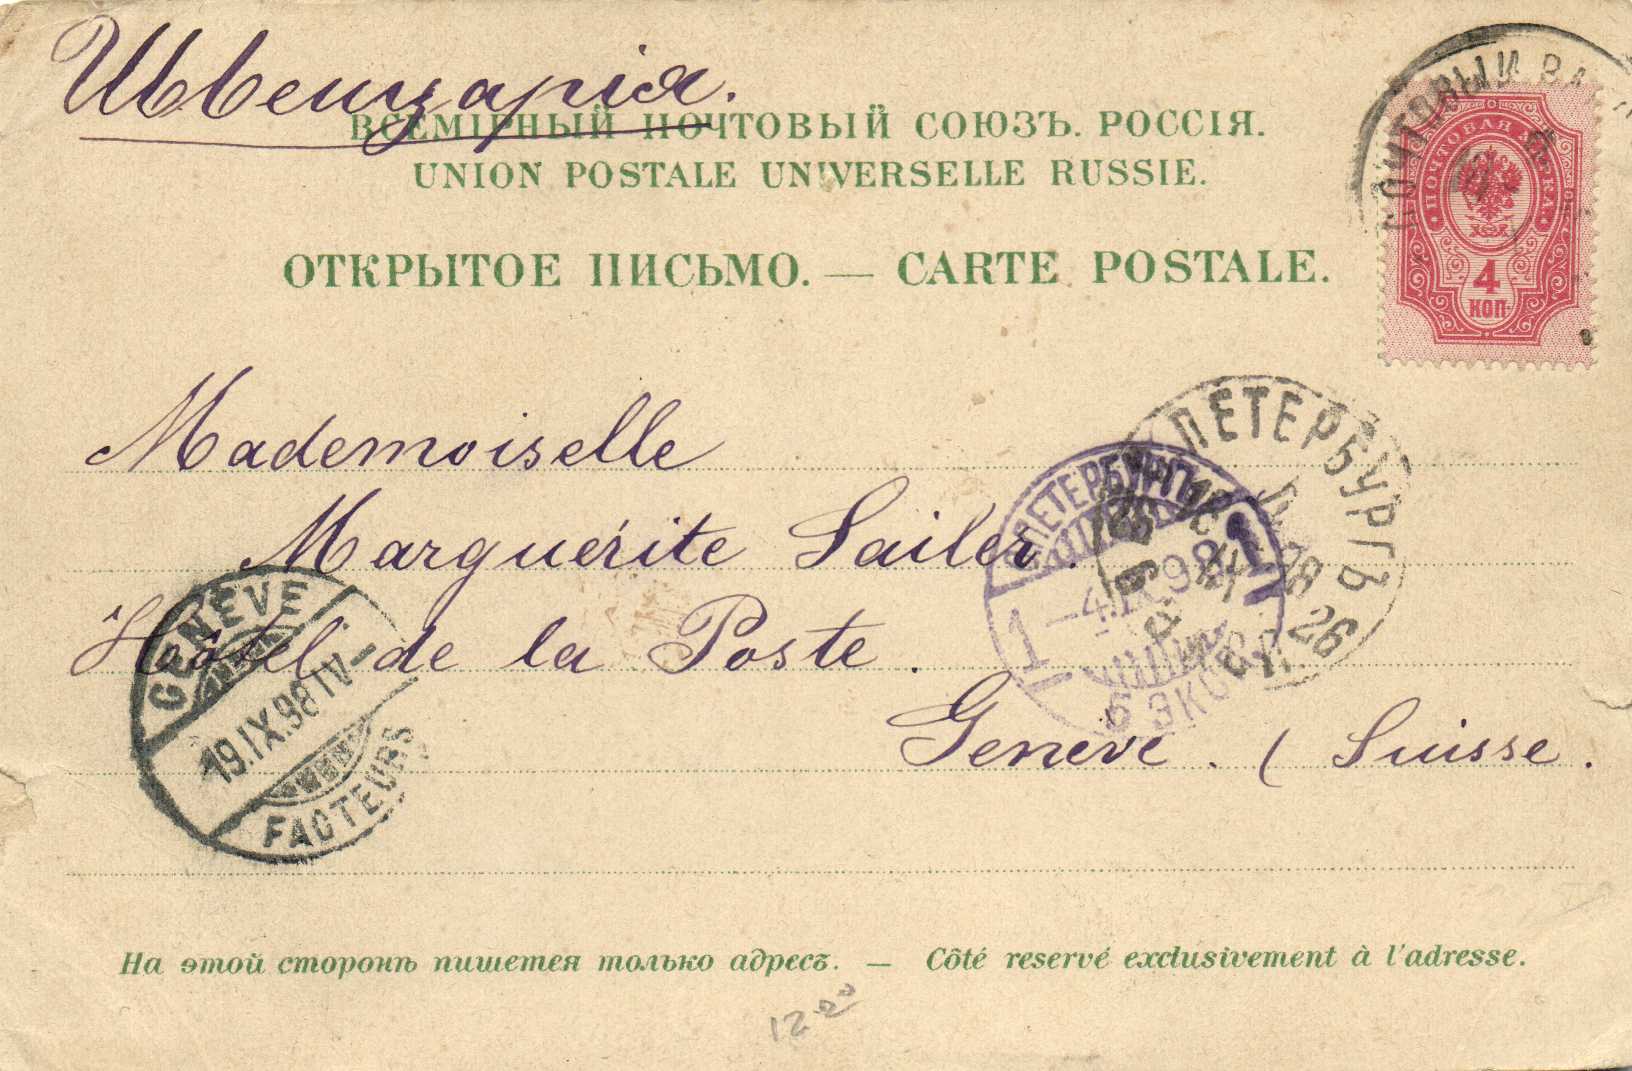 Швейцарія.
ВСЕМІРНЫЙ ПОЧТОВЫЙ СОЮЗЪ. РОССІЯ.
UNION POSTALE UNIVERSELLE RUSSIE.
ОТКРЫТОЕ ПИСЬМО. — CARTE POSTALE.
ПОЧТОВЫЙ
ПОЧТОВАЯ МАРКА
4
КОП.
Mademoiselle
Marguérite Sailer.
Hôtel de la Poste.
Genève. (Suisse.
ПЕТЕРБУРГЪ
С.ПЕТЕРБУРГЪ
1
1
6 ЭКСП
GENÈVE
19.IX.98 IV—
FACTEURS
На этой сторонѣ пишется только адресъ. — Côté reservé exclusivement à l'adresse.
12.20